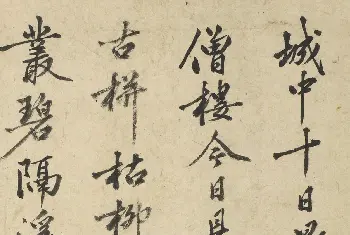 城中十日
僧樓今日
古栟枯柳
叢碧隔溪